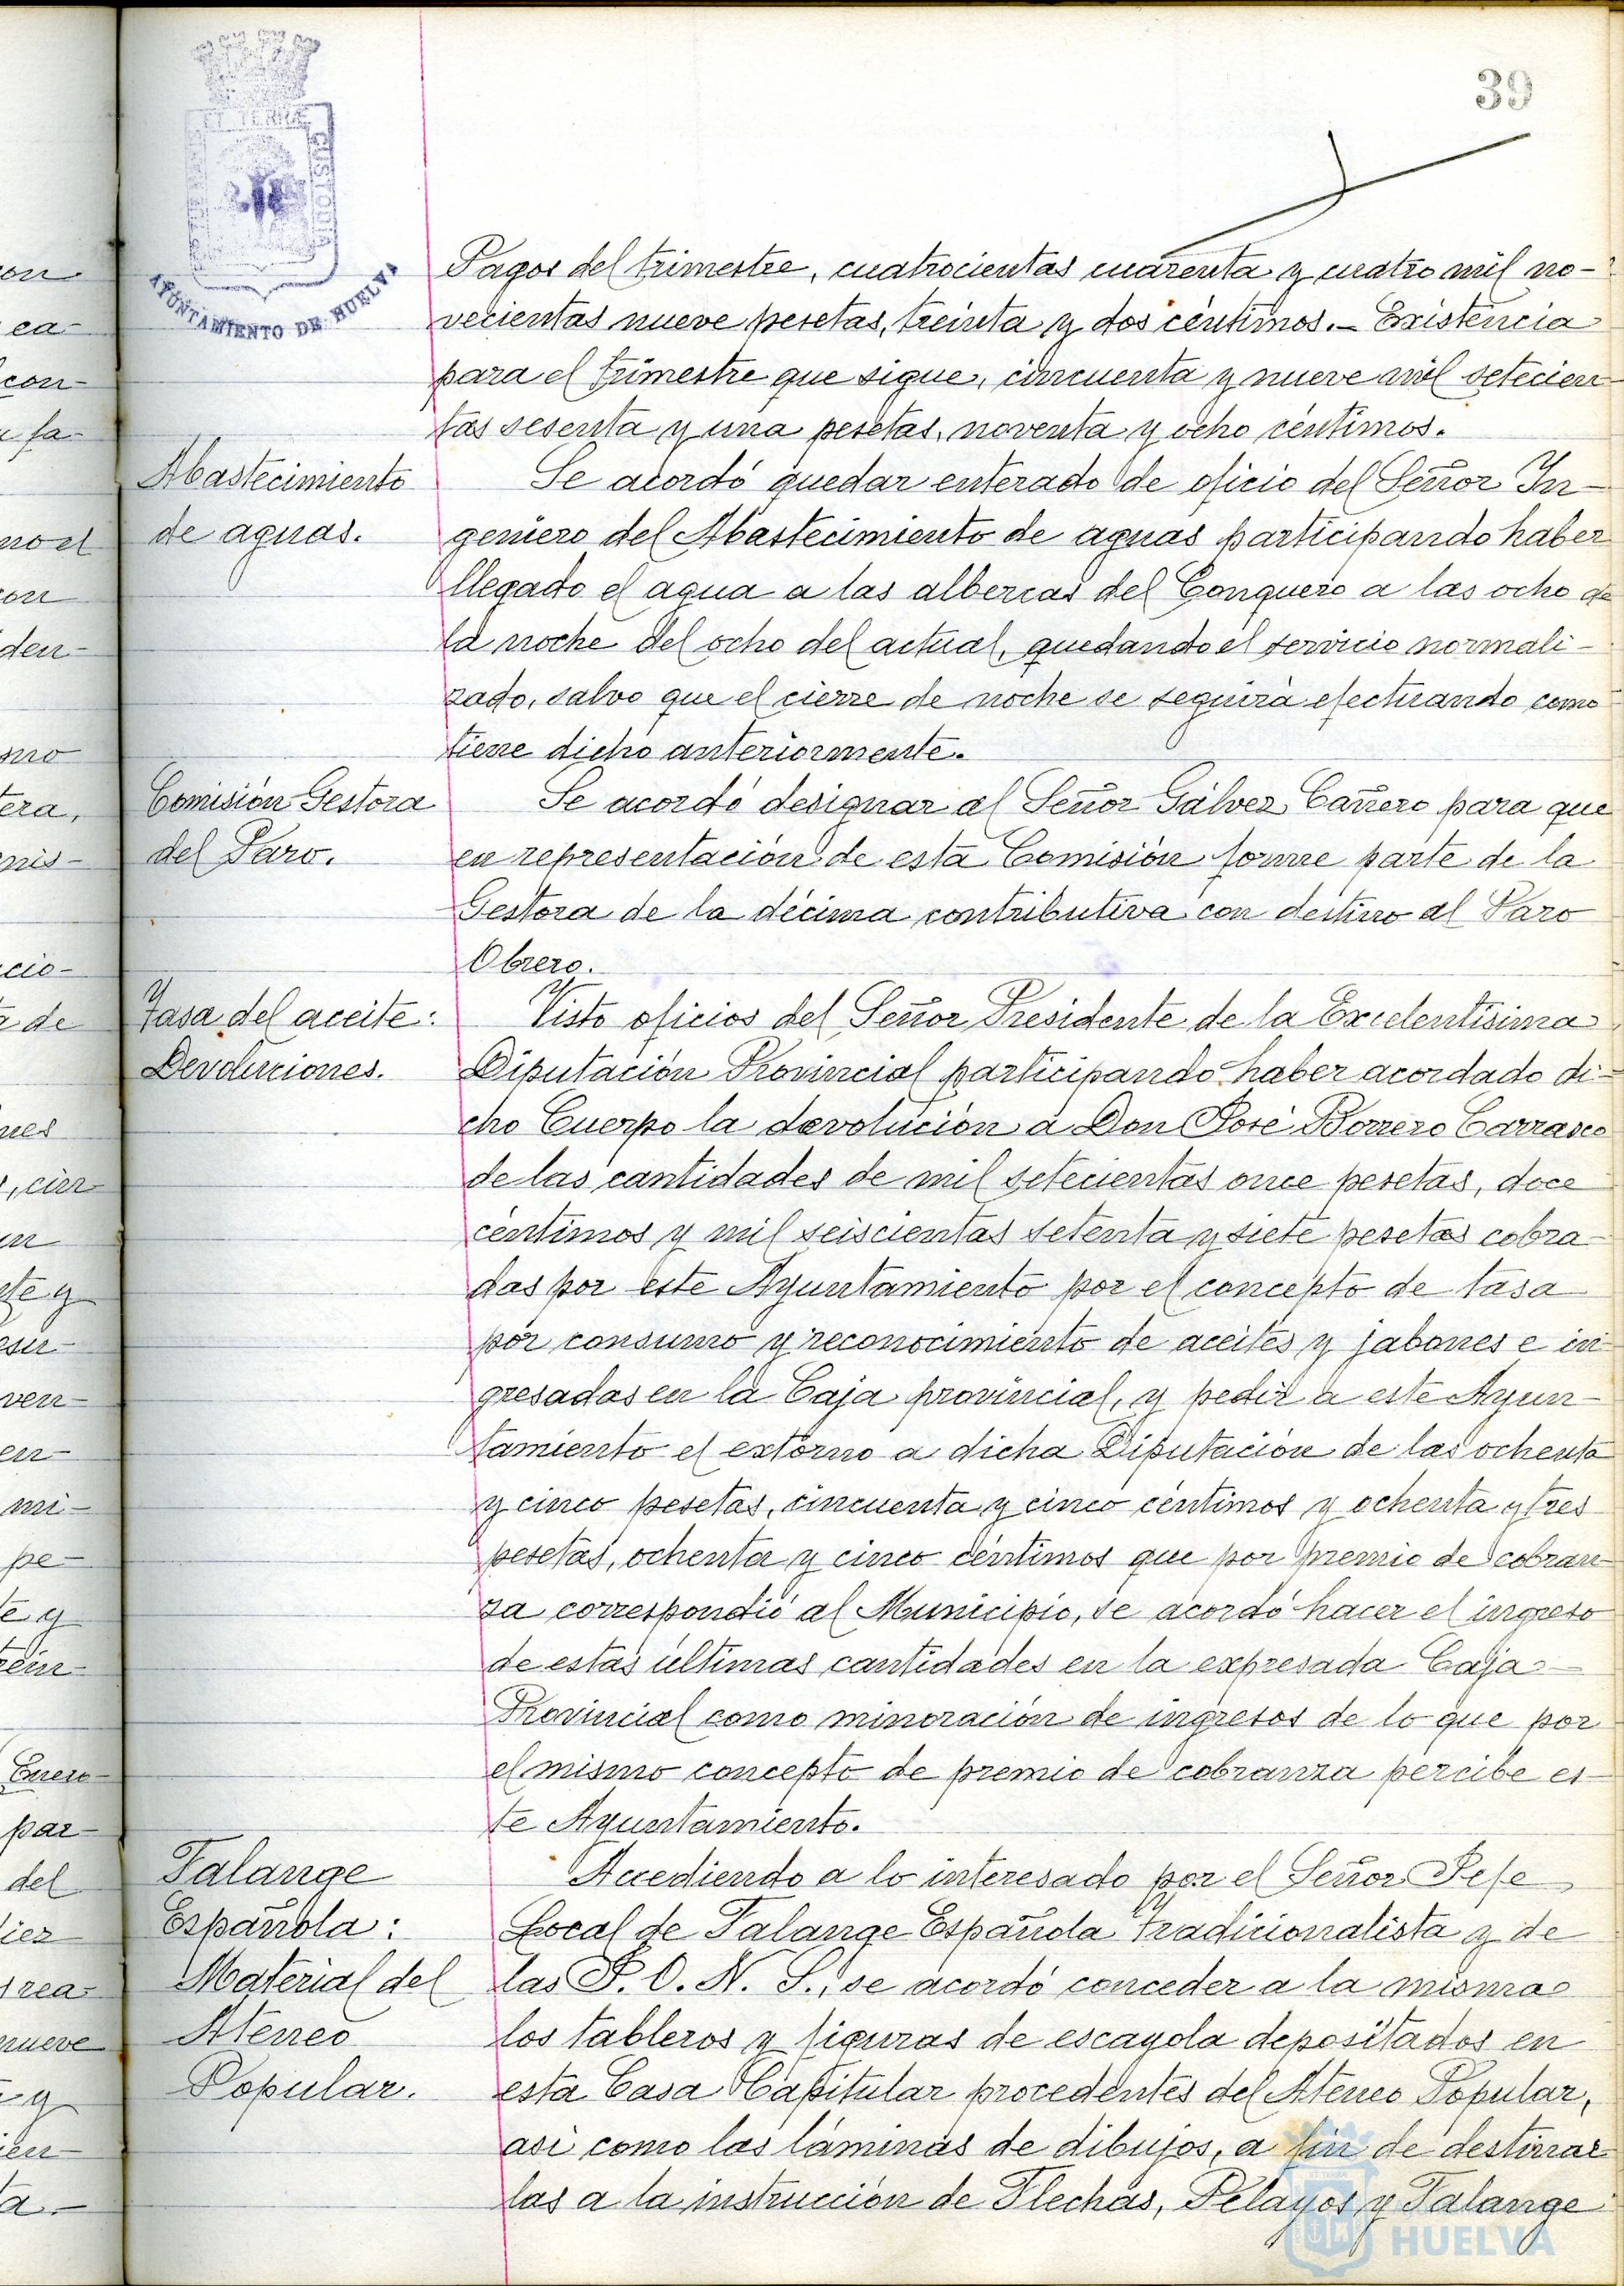 39
ET TERRÆ
CUSTODIA
AYUNTAMIENTO DE HUELVA
Pagos del trimestre, cuatrocientas cuarenta y cuatro mil no-
vecientas nueve pesetas, treinta y dos céntimos.- Existencia
para el trimestre que sigue, cincuenta y nueve mil setecien-
tas sesenta y una pesetas, noventa y ocho céntimos.
Abastecimiento
de aguas.
Se acordó quedar enterado de oficio del Señor In-
geniero del Abastecimiento de aguas participando haber
llegado el agua a las albercas del Conquero a las ocho de
la noche del ocho del actual, quedando el servicio normali-
zado, salvo que el cierre de noche se seguirá efectuando como
tiene dicho anteriormente.
Comisión Gestora
del Paro.
Se acordó designar al Señor Gálvez Cañero para que
en representación de esta Comisión forme parte de la
Gestora de la décima contributiva con destino al Paro
Obrero.
Tasa del aceite:
Devoluciones.
Visto oficios del Señor Presidente de la Excelentísima
Diputación Provincial participando haber acordado di-
cho Cuerpo la devolución a Don José Borrero Carrasco
de las cantidades de mil setecientas once pesetas, doce
céntimos y mil seiscientas setenta y siete pesetas cobra-
das por este Ayuntamiento por el concepto de tasa
por consumo y reconocimiento de aceites y jabones e in-
gresadas en la Caja provincial, y pedir a este Ayun-
tamiento el extorno a dicha Diputación de las ochenta
y cinco pesetas, cincuenta y cinco céntimos y ochenta y tres
pesetas, ochenta y cinco céntimos que por premio de cobran-
za correspondió al Municipio, se acordó hacer el ingreso
de estas últimas cantidades en la expresada Caja
Provincial como minoración de ingresos de lo que por
el mismo concepto de premio de cobranza percibe es-
te Ayuntamiento.
Falange
Española:
Material del
Ateneo
Popular.
Accediendo a lo interesado por el Señor Jefe
Local de Falange Española Tradicionalista y de
las J. O. N. S., se acordó conceder a la misma
los tableros y figuras de escayola depositados en
esta Casa Capitular procedentes del Ateneo Popular,
asi como las láminas de dibujos, a fin de destinar-
las a la instrucción de Flechas, Pelayos y Falange
HUELVA